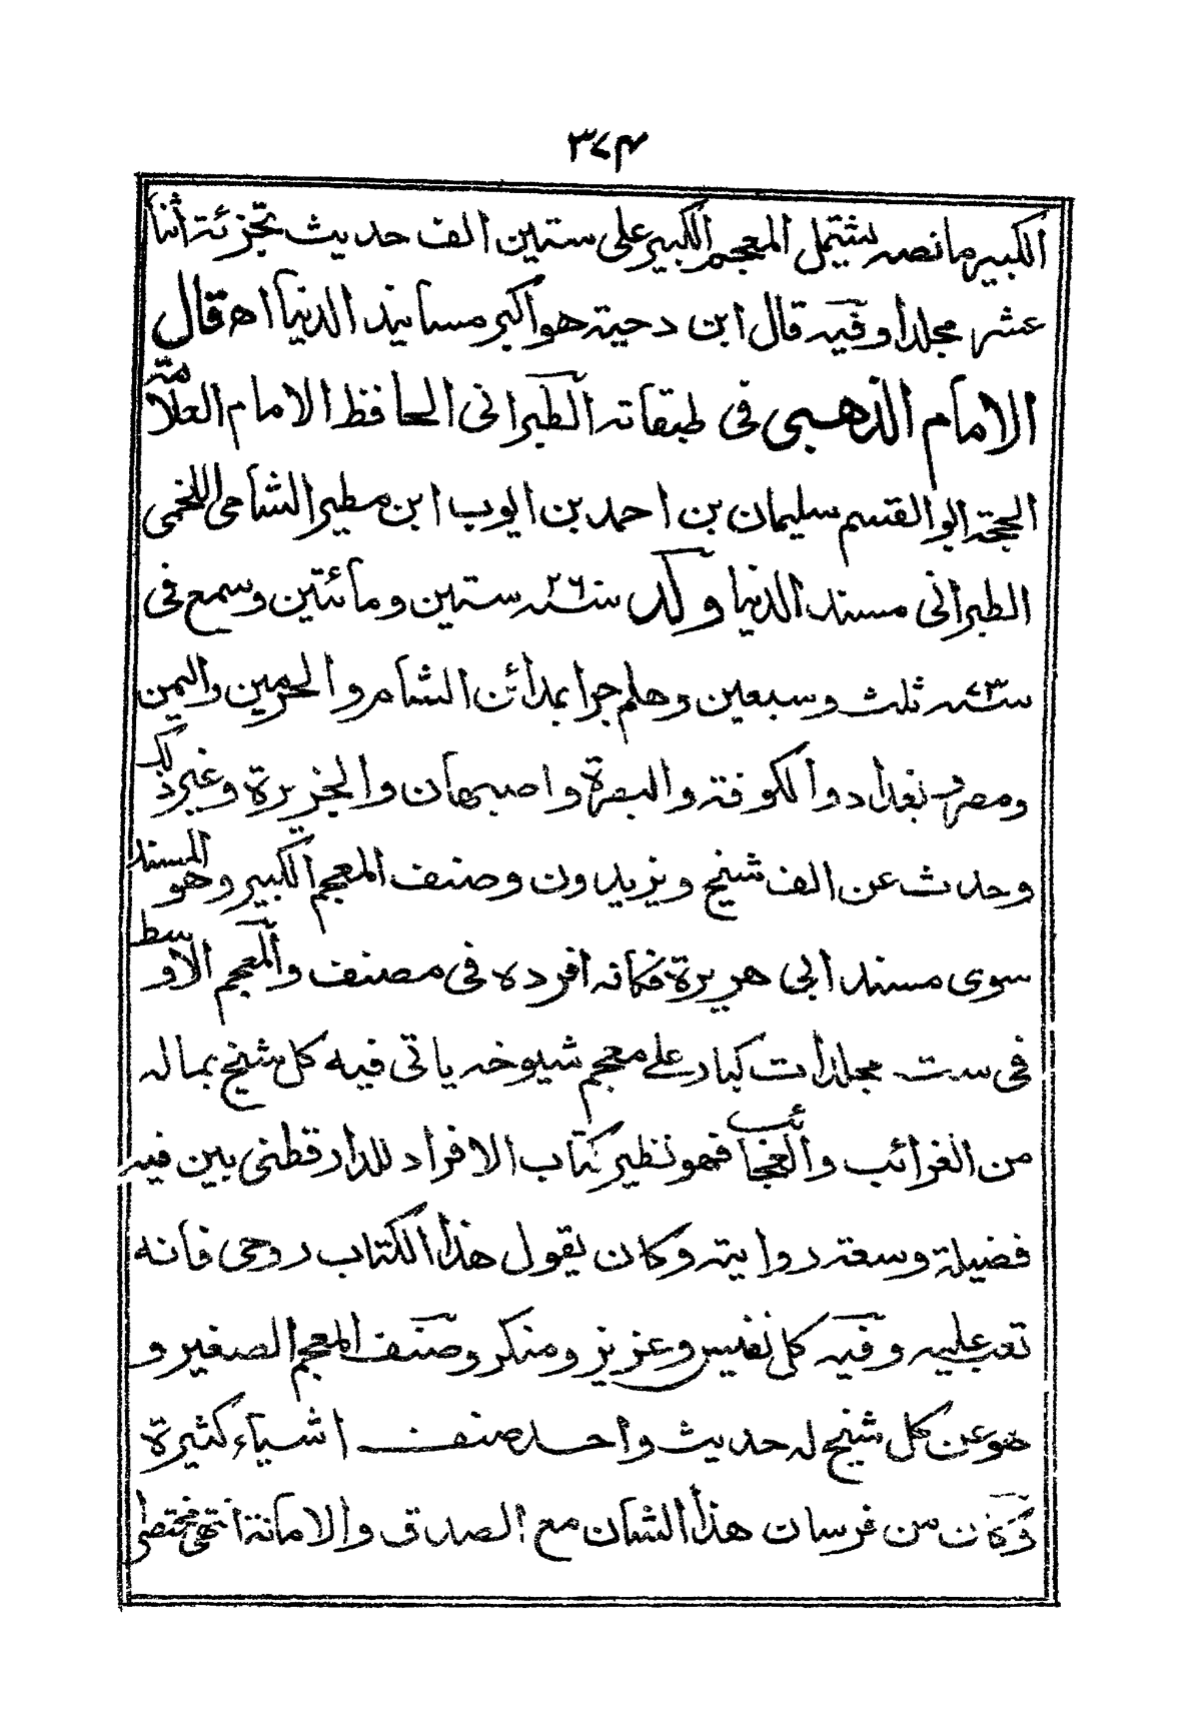 ٣٧٤
الكبير ما نصه يشتمل المعجم الكبير على ستين الف حديث تجزئة اثنا
عشر مجلدا وفيه قال ابن دحية هو اكبر مسانيد الدنيا اه قال
الامام الذهبي في طبقاته الطبراني الحافظ الامام العلامة
الحجة ابو القسم سليمان بن احمد بن ايوب ابن مطير الشامي اللخمي
الطبراني مسند الدنيا ولد سنة ٢٦٠ ستين ومائتين وسمع في
سنة ٧٣ ثلث وسبعين وهلم جرا بمدائن الشام والحرمين واليمن
ومصر وبغداد والكوفة والبصرة واصبهان والجزيرة وغير ذلك
وحدث عن الف شيخ ويزيدون وصنف المعجم الكبير وهو المسند
سوى مسند ابي هريرة فكانه افرده في مصنف والمعجم الاوسط
في ست مجلدات كبار على معجم شيوخه ياتي فيه كل شيخ بما له
من الغرائب والعجائب فهو نظير كتاب الافراد للدارقطني بين فيه
فضيلة وسعة روايته وكان يقول هذا الكتاب روحي فانه
تعب عليه وفيه كل نفيس وعزيز ومنكر وصنف المعجم الصغير و
هو عن كل شيخ له حديث واحد صنف اشياء كثيرة
وكان من فرسان هذا الشان مع الصدق والامانة انتهى مختصرا